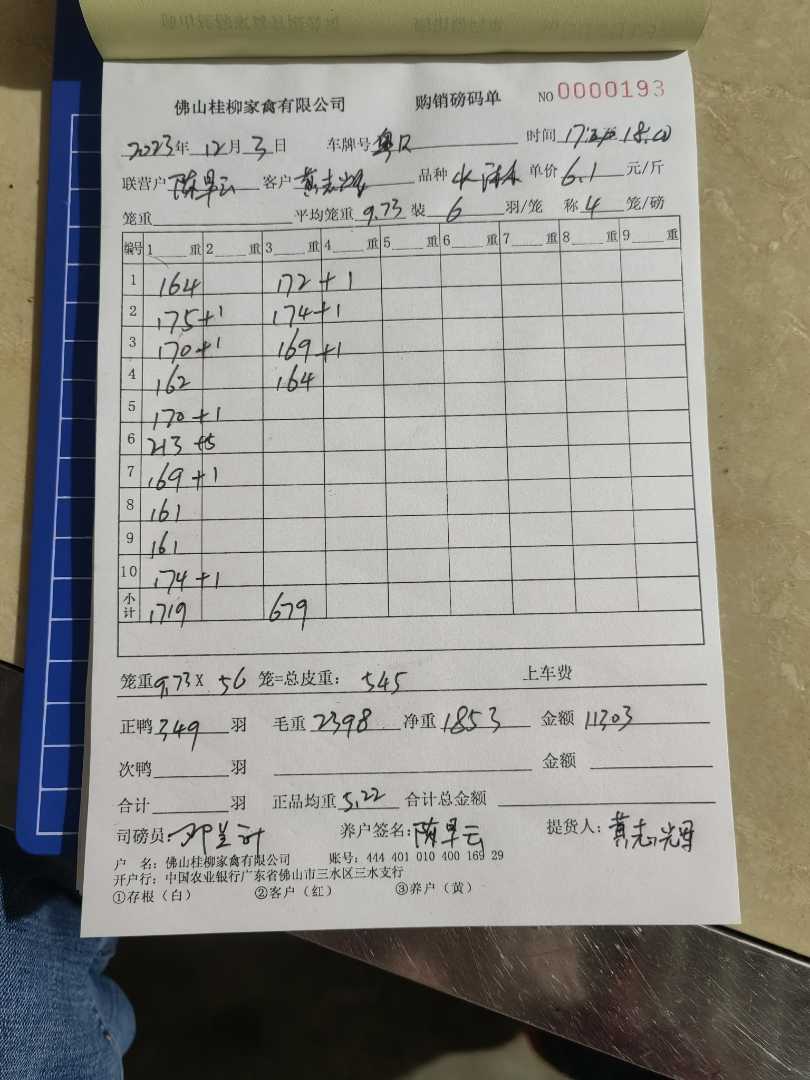 佛山桂柳家禽有限公司 购销磅码单 NO 0000193
2023年 12月 3日 车牌号 粤R 时间 18:00
联营户 陈旱云 客户 黄志光 品种 单价 6.1 元/斤
笼重 平均笼重 9.73 装 6 羽/笼 称 4 笼/磅
编号 1 重 2 重 3 重 4 重 5 重 6 重 7 重 8 重 9 重
1 164 172+1
2 175+1 174+1
3 170+1 169+1
4 162 164
5 170+1
6 213+5
7 169+1
8 161
9 161
10 174+1
小计 1719 679
笼重 9.73 X 56 笼=总皮重: 545 上车费
正鸭 349 羽 毛重 2398 净重 1853 金额 11303
次鸭 羽 金额
合计 羽 正品均重 5.22 合计总金额
司磅员: 养户签名: 陈旱云 提货人: 黄志光
户 名: 佛山桂柳家禽有限公司 账号: 444 401 010 400 169 29
开户行: 中国农业银行广东省佛山市三水区三水支行
①存根（白） ②客户（红） ③养户（黄）